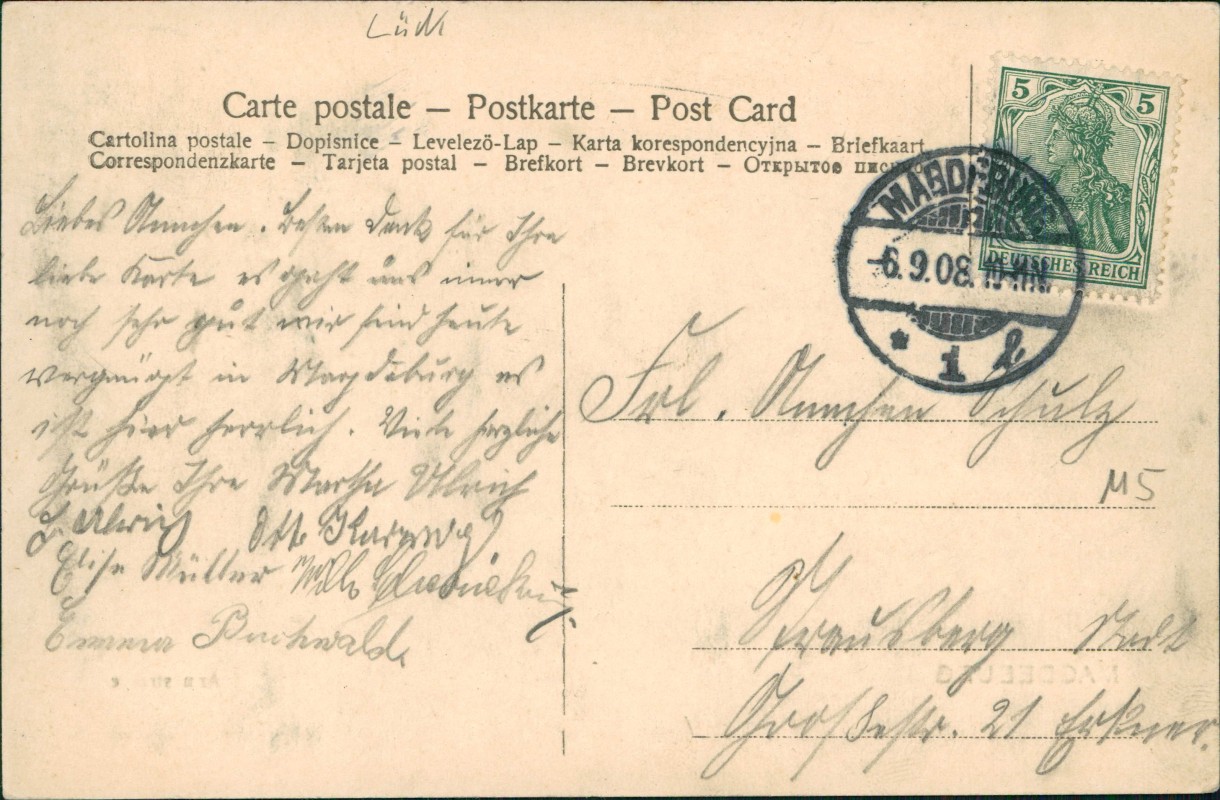 Lüdk
Carte postale – Postkarte – Post Card
Cartolina postale – Dopisnice – Levelező-Lap – Karta korespondencyjna – Briefkaart
Correspondenzkarte – Tarjeta postal – Brefkort – Brevkort – Открытое письмо
5 5
DEUTSCHES REICH
MAGDEBURG
-6.9.08.
* 1 k.
Liebes Annchen. Besten Dank für Ihre
liebe Karte es geht uns imer
noch sehr gut wir sind heute
vergnügt in Magdeburg es
ist hier herrlich. Viele herzliche
Grüße Ihre Martha Ulrich
Otto
Elise Müller Willi
Emma Buchwald.
Frl. Annchen Schulz
M5
Strausberg Stadt
Großestr. 21 Erkner.